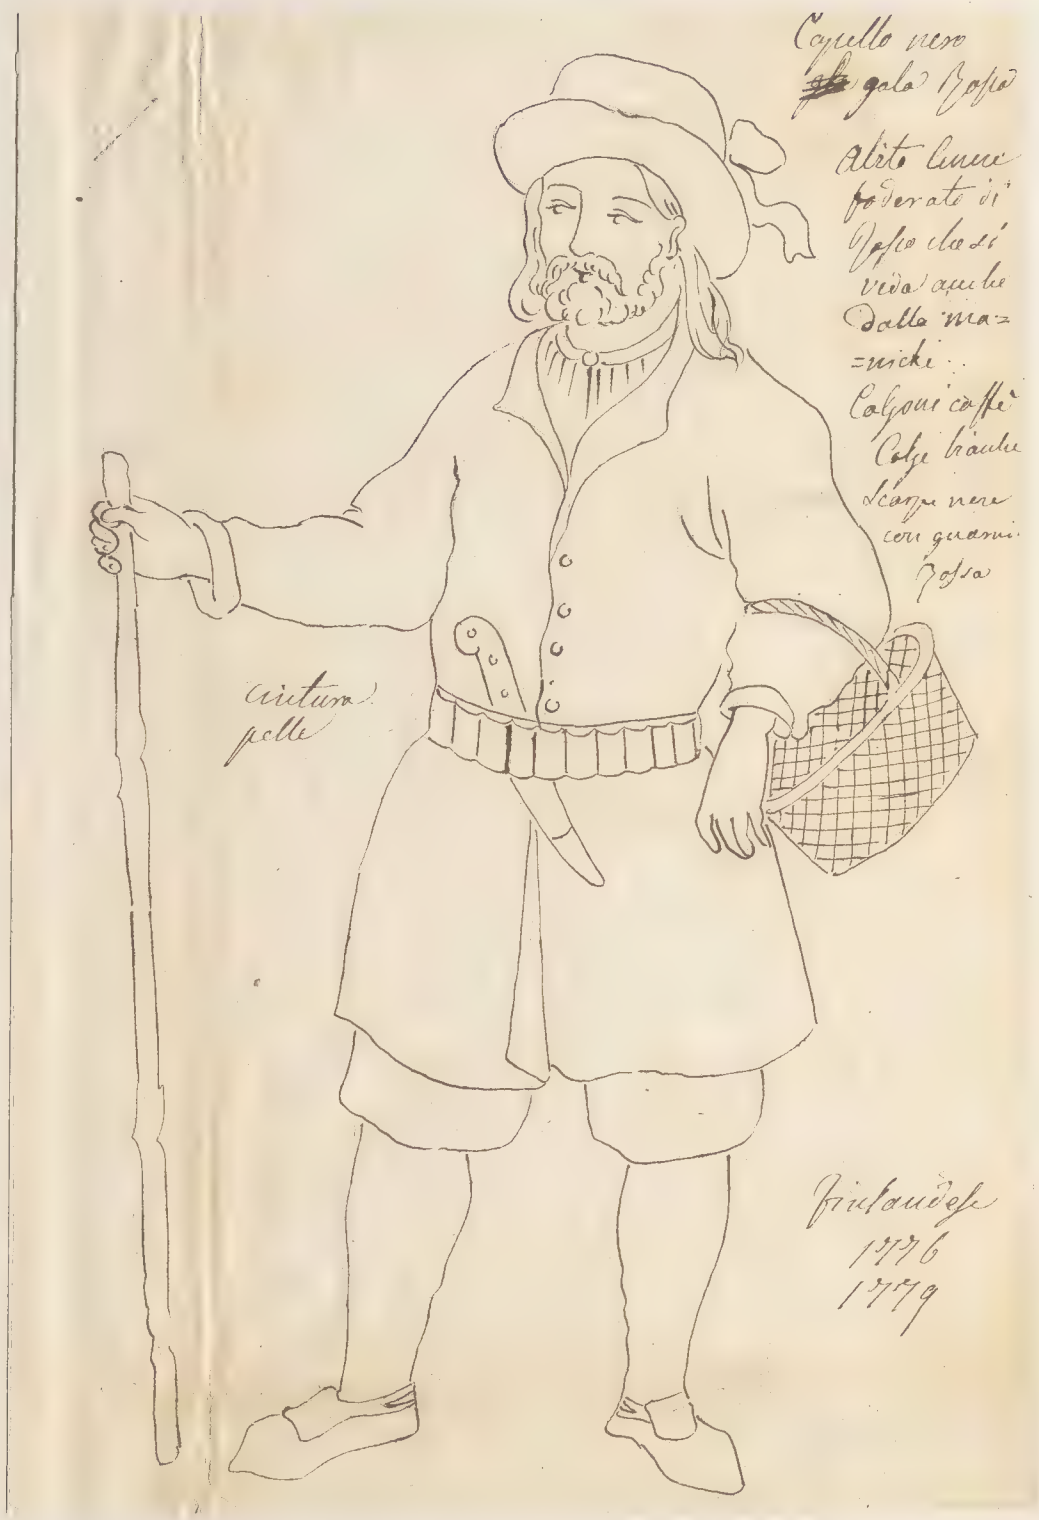 Capello nero
gala Rossa
Abito cenere
foderato di
Rosso che si
veda anche
dalle ma=
=niche.
Calzoni caffè
Calze bianche
Scarpe nere
con guarni.
Rossa
cintura
pelle
Finlandese
1776
1779